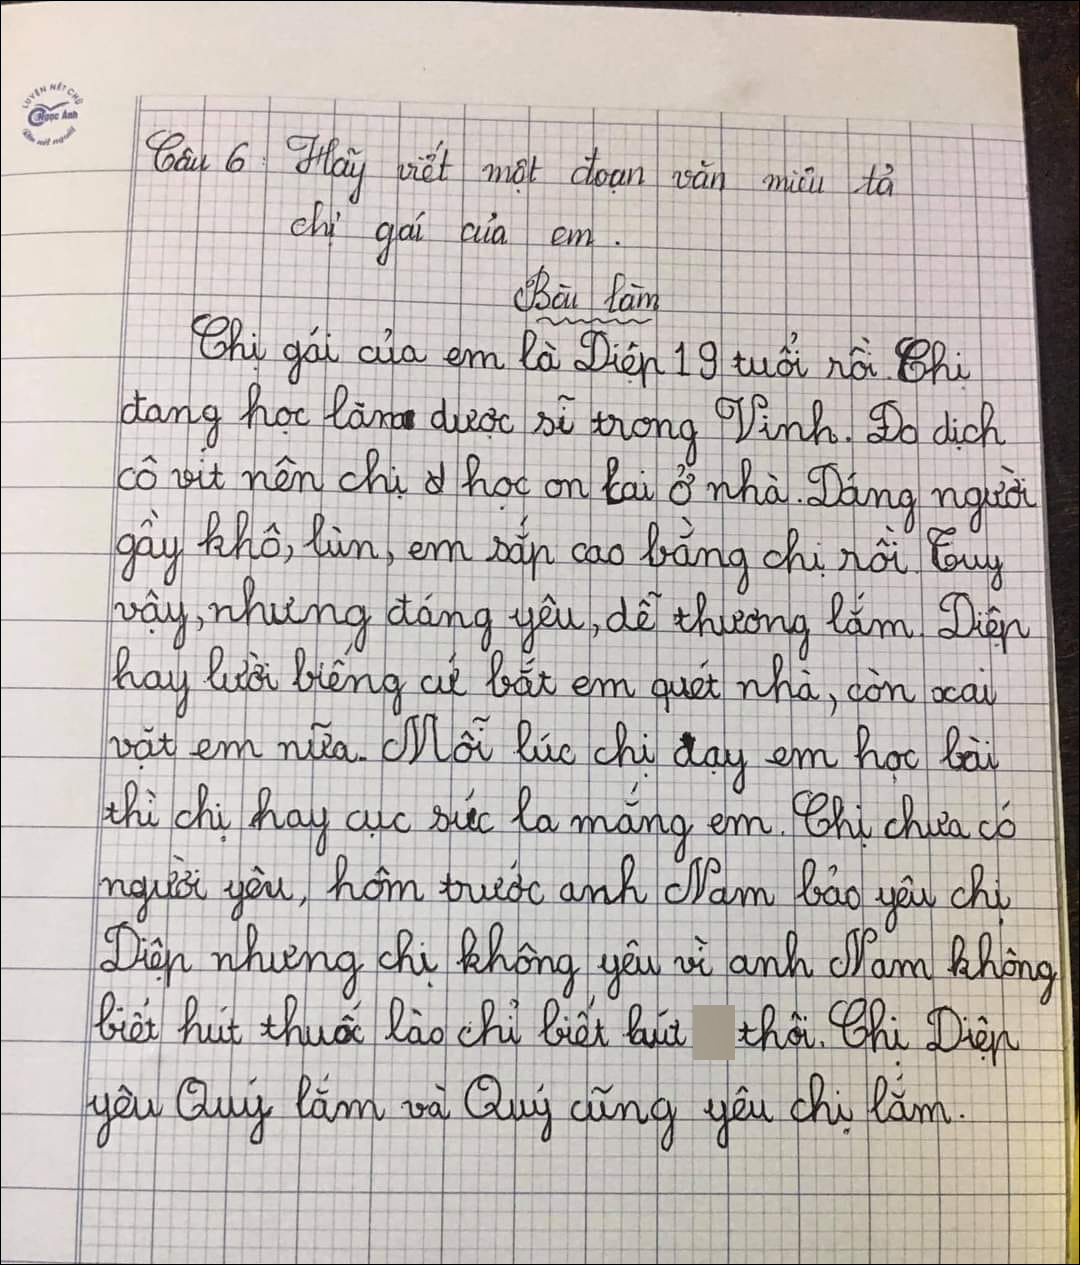 LUYỆN NÉT CHỮ
Ngọc Ánh
Rèn nết người
Câu 6: Hãy viết một đoạn văn miêu tả
chị gái của em.
Bài làm
Chị gái của em là Diệp 19 tuổi rồi. Chị
đang học làm dược sĩ trong Vinh. Do dịch
cô vit nên chị học on lai ở nhà. Dáng người
gầy khô, lùn, em sắp cao bằng chị rồi. Tuy
vậy, nhưng đáng yêu, dễ thương lắm. Diệp
hay lười biếng cứ bắt em quét nhà, còn xai
vặt em nữa. Mỗi lúc chị dạy em học bài
thì chị hay cục súc la mắng em. Chị chưa có
người yêu, hôm trước anh Nam bảo yêu chị
Diệp nhưng chị không yêu vì anh Nam không
biết hút thuốc lào chỉ biết bút thôi. Chị Diệp
yêu Quý lắm và Quý cũng yêu chị lắm.